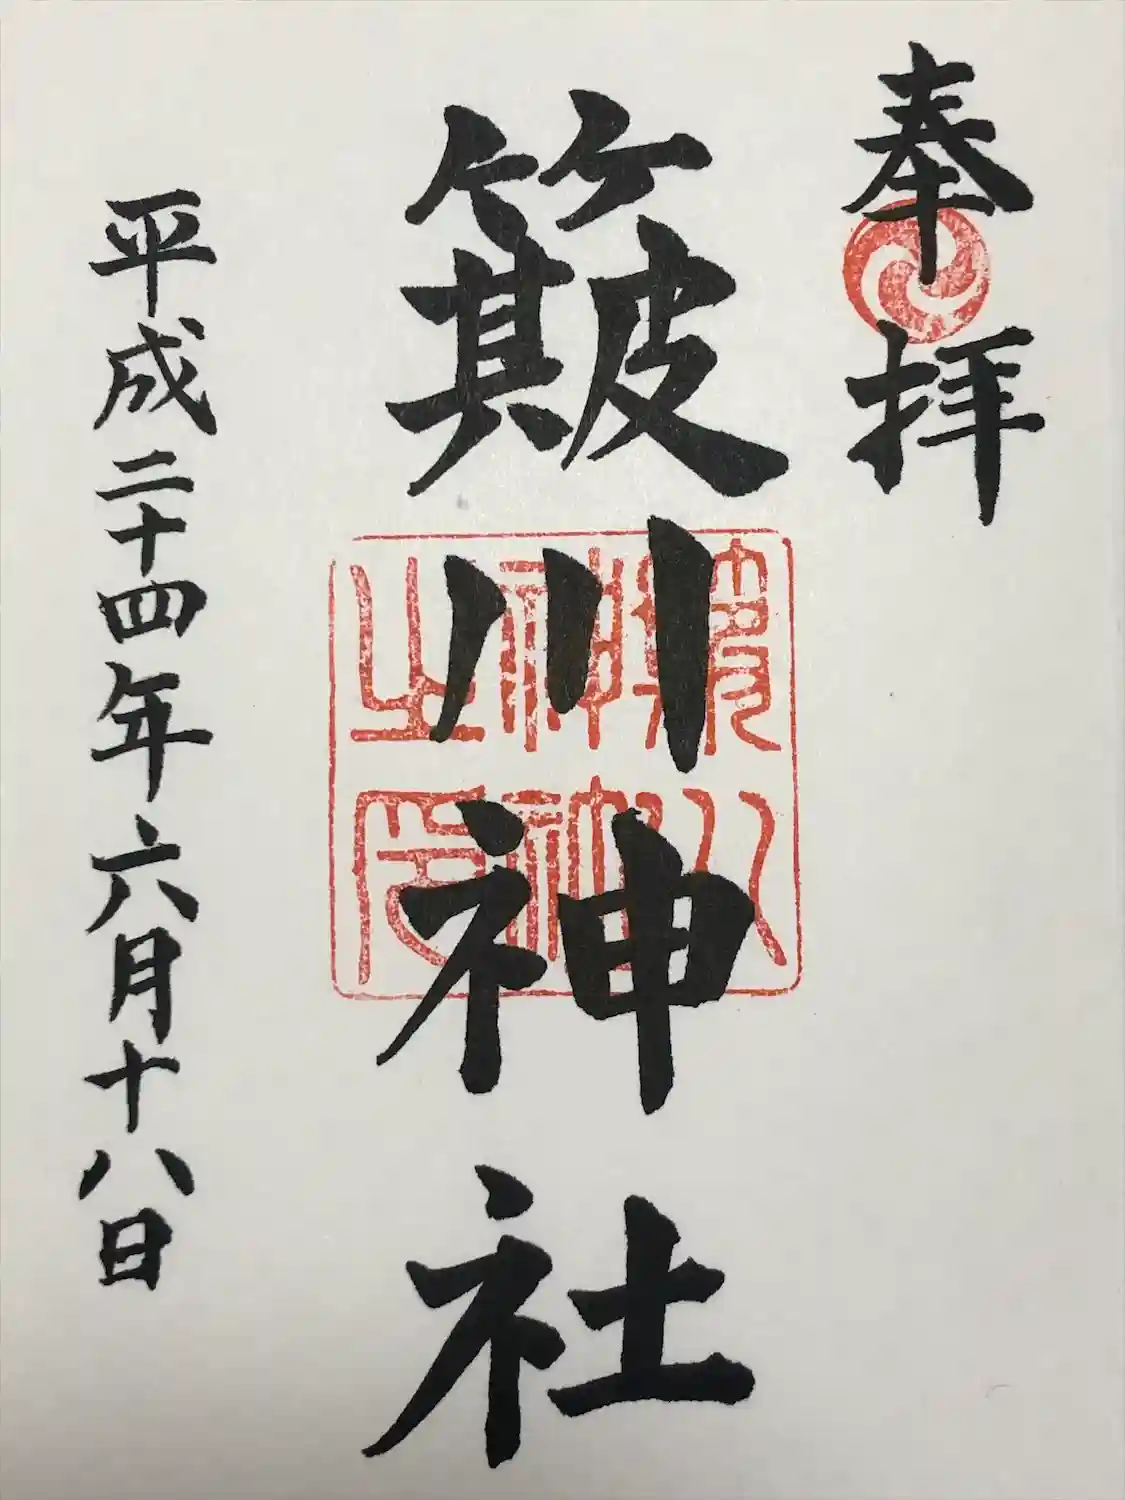 奉拝
簸川神社
簸川神社之印
平成二十四年六月十八日